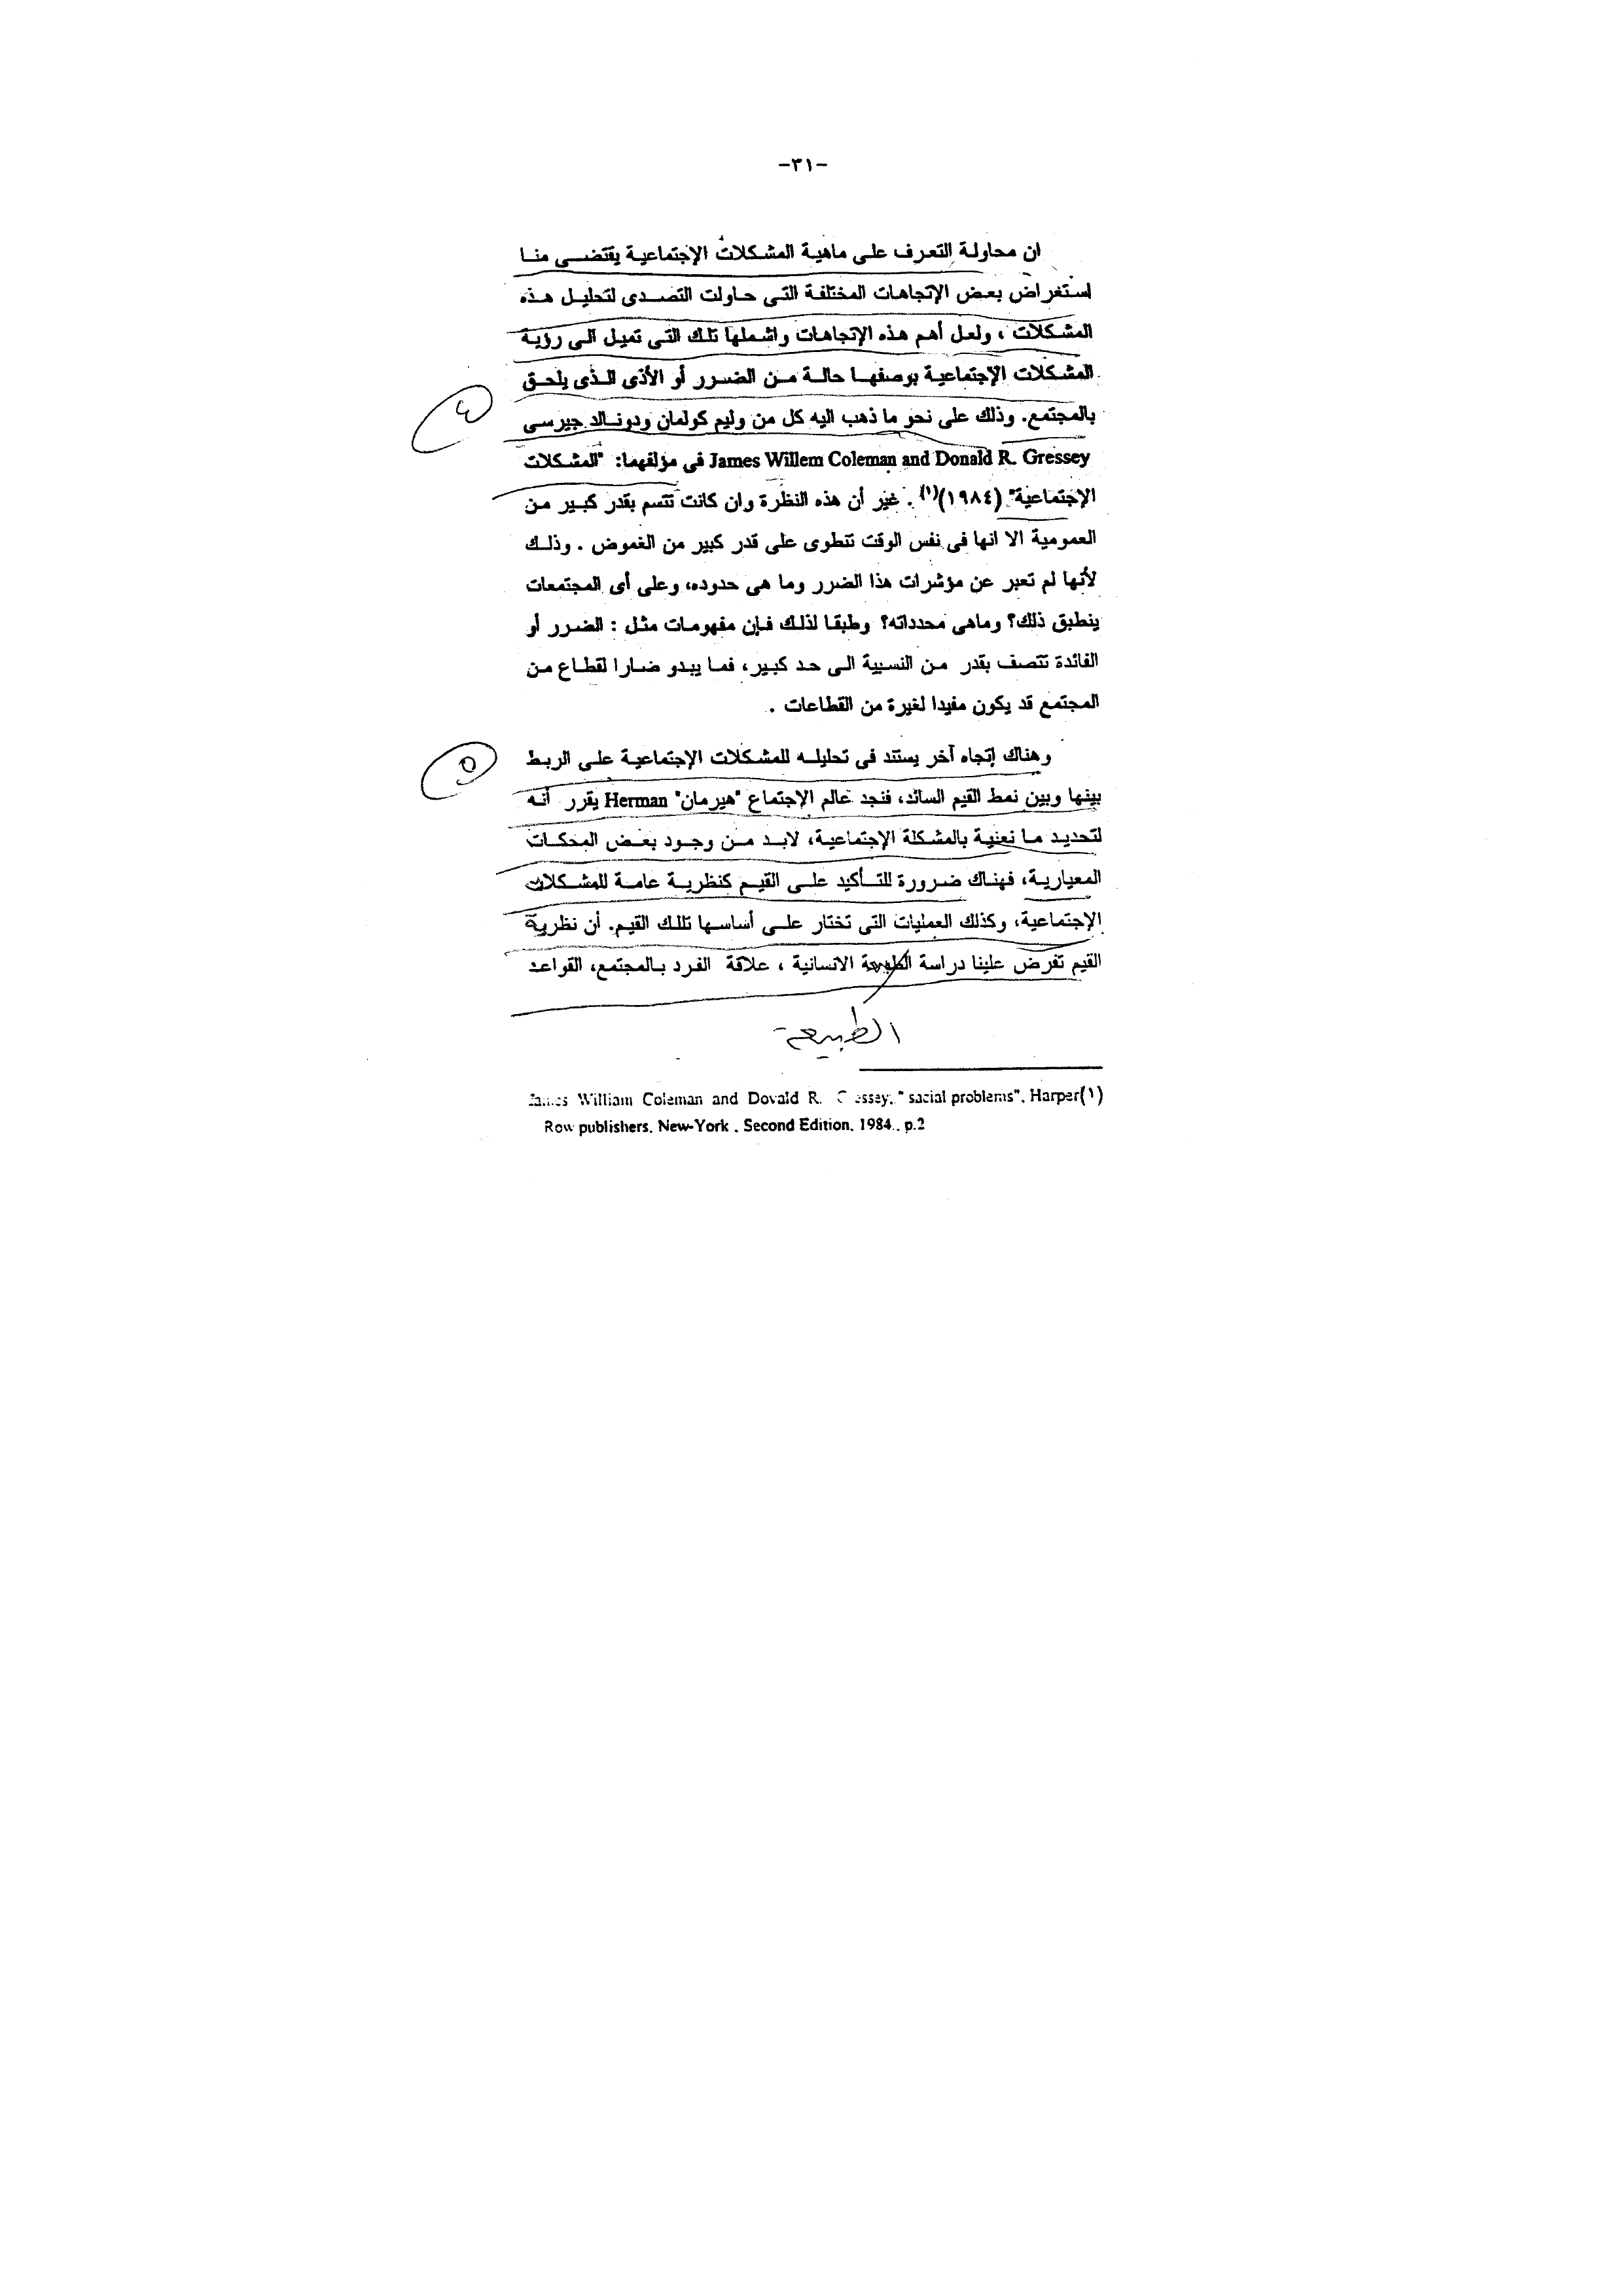 -٣١-
ان محاولة التعرف على ماهية المشكلات الإجتماعية يقتضى منا
استغراض بعض الإتجاهات المختلفة التى حاولت التصدى لتحليل هذه
المشكلات ، ولعل أهم هذه الإتجاهات واشملها تلك التى تميل الى رؤية
المشكلات الإجتماعية بوصفها حالة من الضرر أو الأذى الذى يلحق
بالمجتمع. وذلك على نحو ما ذهب اليه كل من وليم كولمان ودونالد جيرسى
James Willem Coleman and Donald R. Gressey فى مؤلفهما: "المشكلات
الإجتماعية" (١٩٨٤)(١) . غير أن هذه النظرة وان كانت تتسم بقدر كبير من
العمومية الا انها فى نفس الوقت تنطوى على قدر كبير من الغموض . وذلك
لأنها لم تعبر عن مؤشرات هذا الضرر وما هى حدوده، وعلى أى المجتمعات
ينطبق ذلك؟ وماهى محدداته؟ وطبقا لذلك فإن مفهومات مثل : الضرر أو
الفائدة تتصف بقدر من النسبية الى حد كبير، فما يبدو ضارا لقطاع من
المجتمع قد يكون مفيدا لغيرة من القطاعات .
٤
وهناك إتجاه آخر يستند فى تحليله للمشكلات الإجتماعية على الربط
بينها وبين نمط القيم السائد، فنجد عالم الإجتماع "هيرمان" Herman يقرر أنه
لتحديد ما نعنية بالمشكلة الإجتماعية، لابد من وجود بعض المحكات
المعيارية، فهناك ضرورة للتأكيد على القيم كنظرية عامة للمشكلات
الإجتماعية، وكذلك العمليات التى تختار على أساسها تلك القيم. أن نظرية
القيم تفرض علينا دراسة الانسانية ، علاقة الفرد بالمجتمع، القواعد
٥
الطبيعة
James William Coleman and Dovald R. " sacial problems", Harper(١)
Row publishers, New-York , Second Edition, 1984., p.2